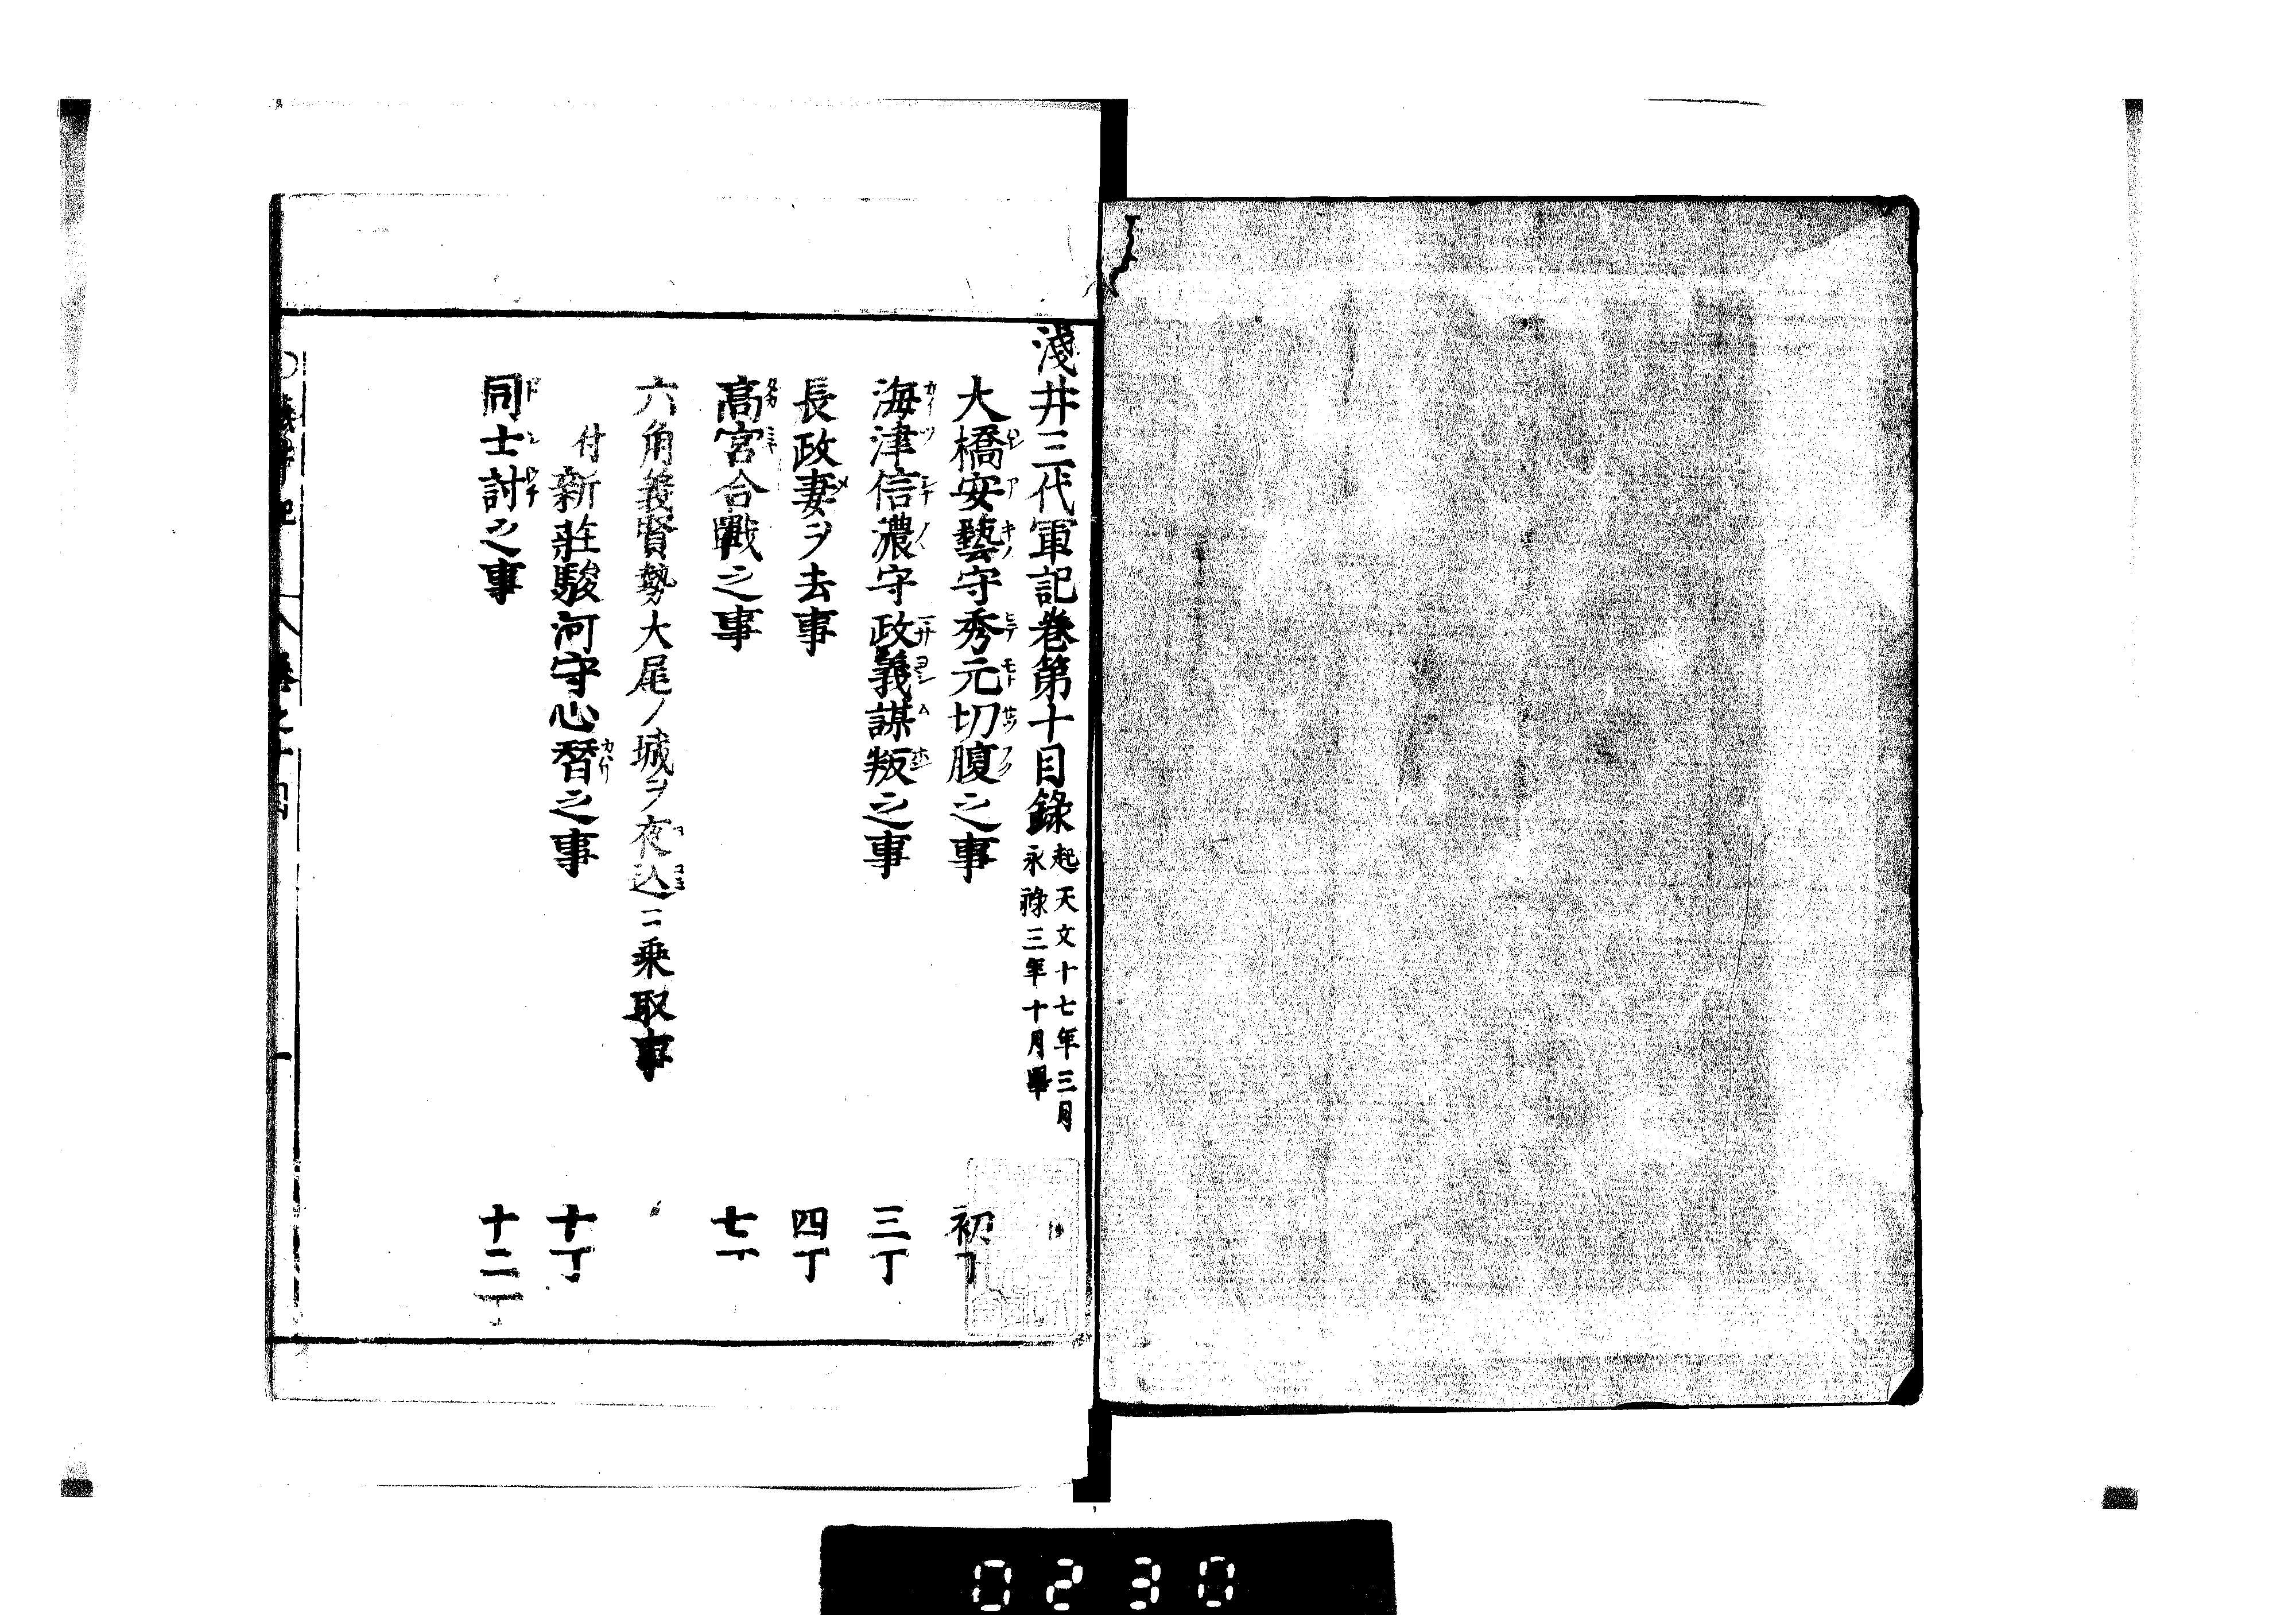 淺井三代軍記卷第十目錄 起天文十七年三月
永祿三年十月畢
大橋安藝守秀元切腹之事 初丁
海津信濃守政義謀叛之事 三丁
長政妻ヲ去事 四丁
高宮合戰之事 七丁
六角義賢勢大尾ノ城ヲ夜込ニ乗取事
付新莊駿河守心替之事 十丁
同士討之事 十二丁
0230